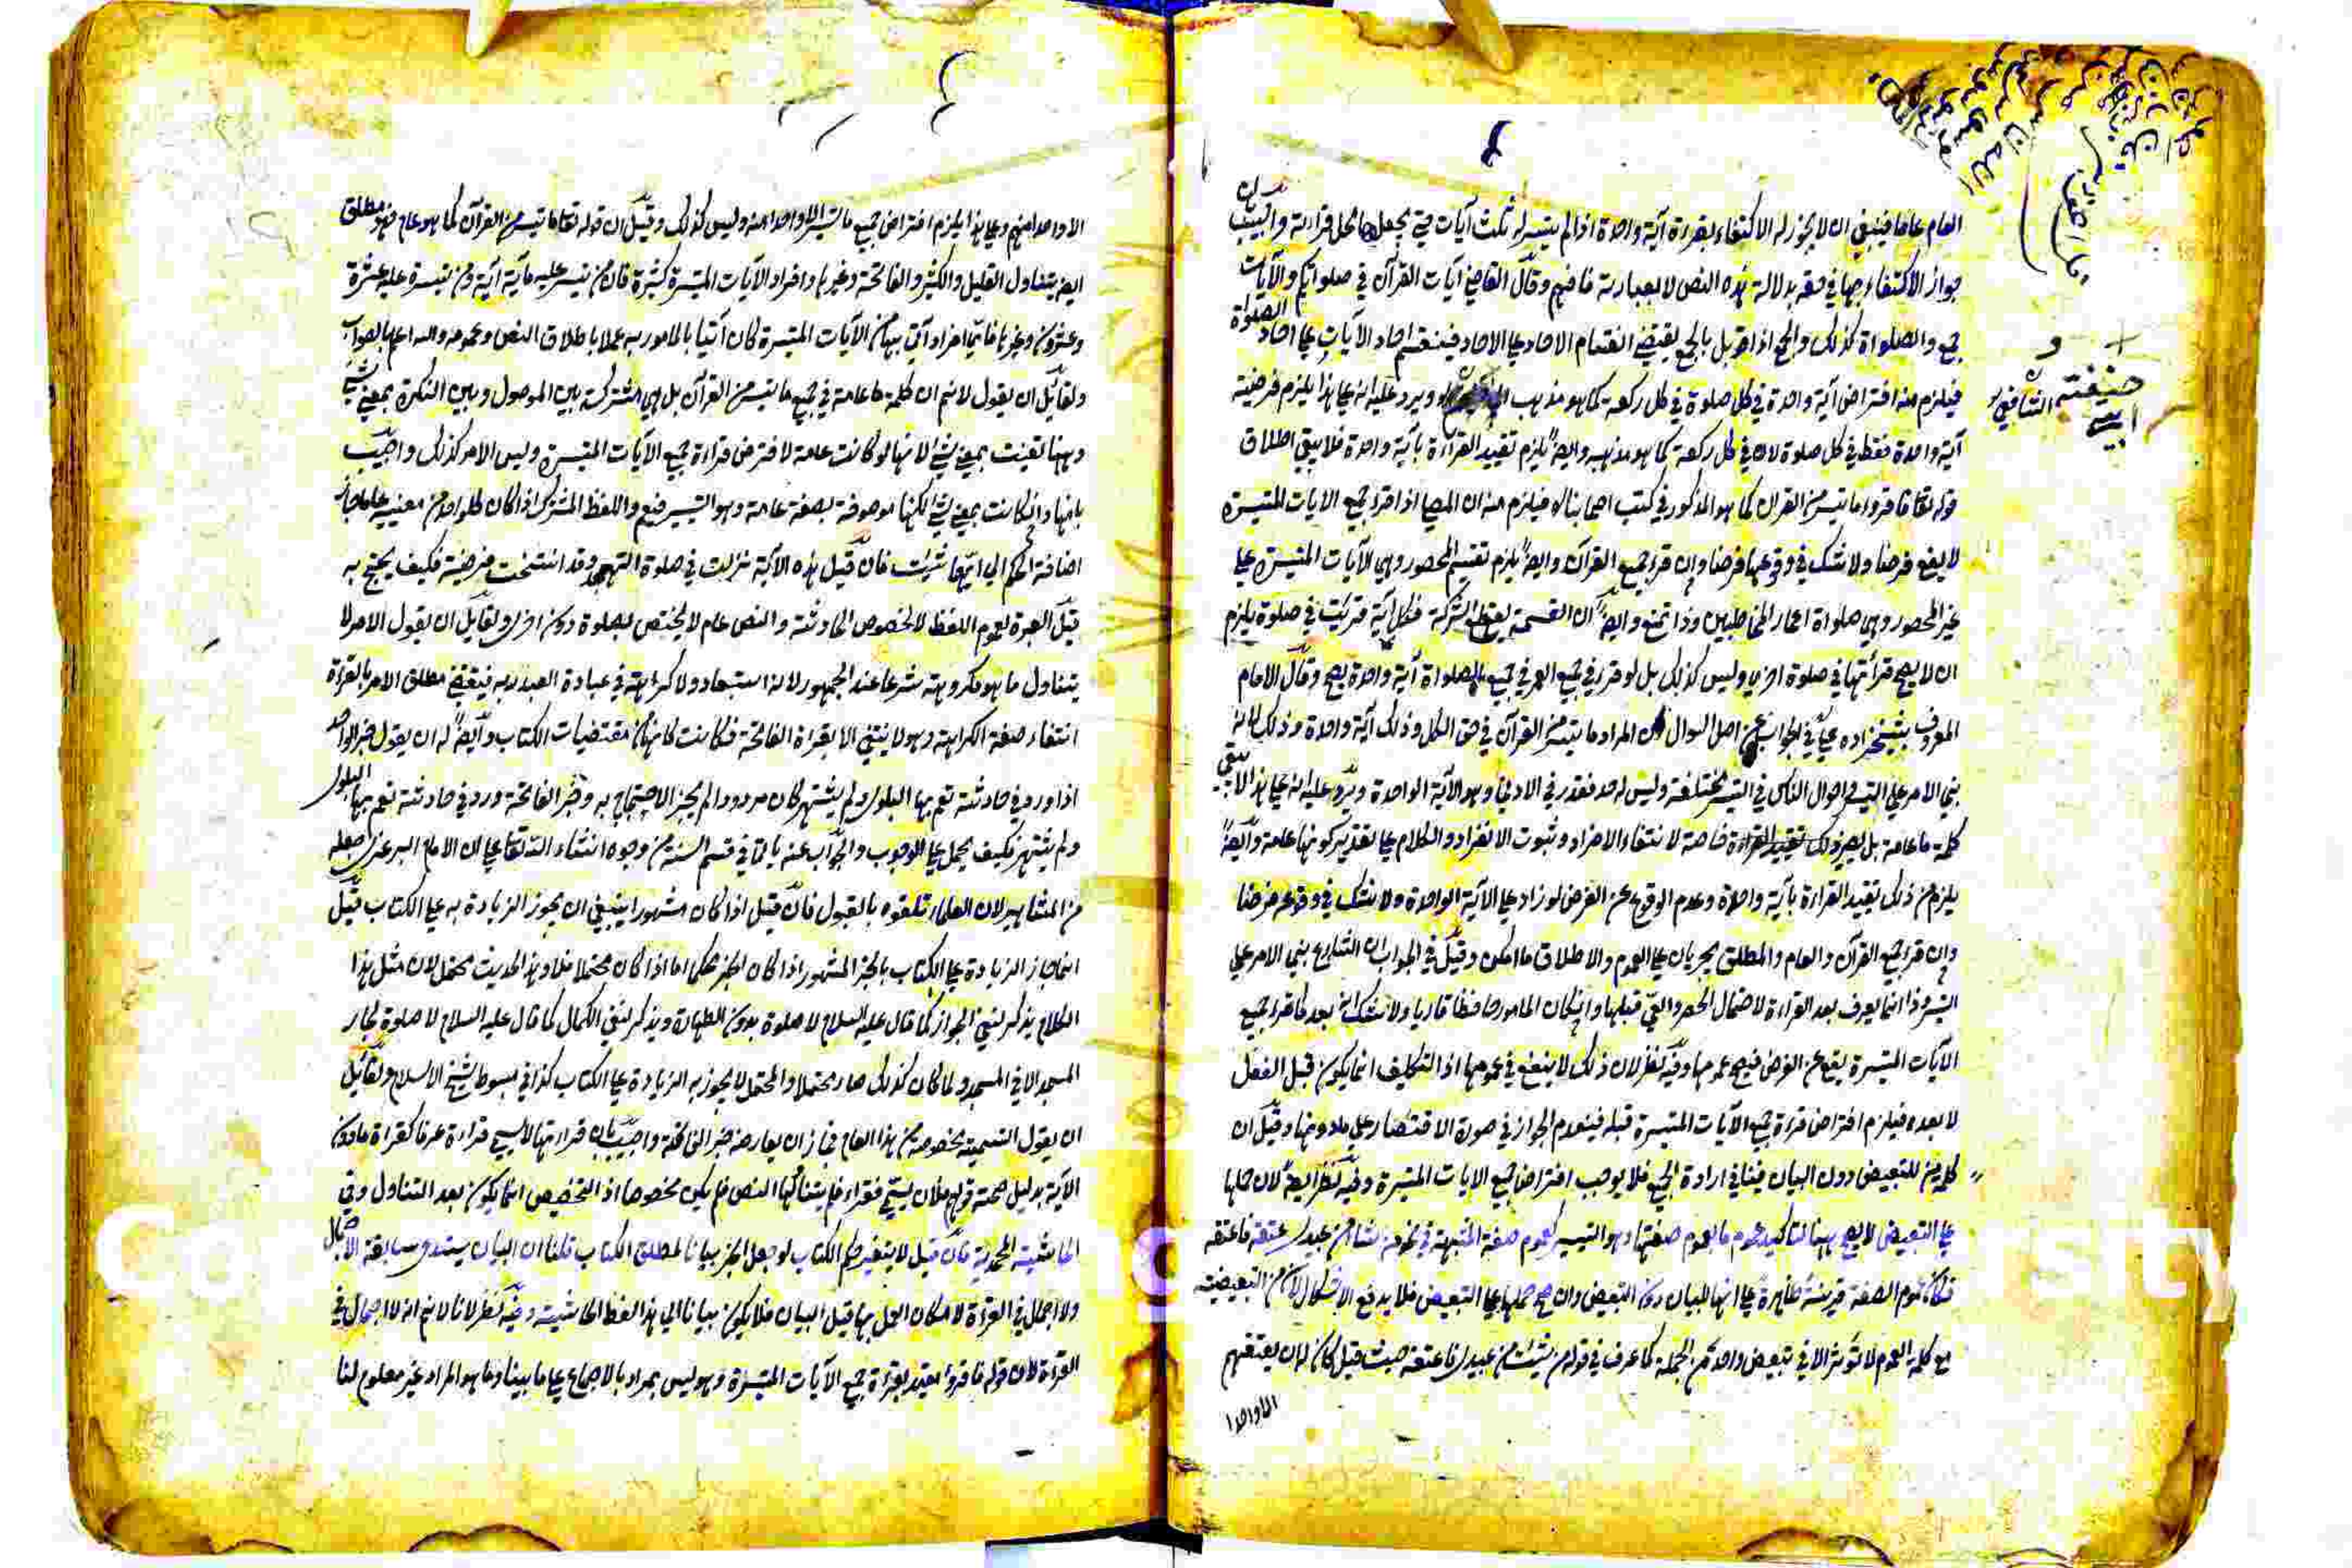 العام عاما فينبغي ان لا يجوز له الاكتفاء بقراءة آية واحدة اذا لم يتيسر له ثلث آيات حتى يجعل محل قراءته واجيب بان
جواز الاكتفاء بها في حقه بدلالة هذه النص لا بعبارته فافهم وقال القاضي آيات القرآن في صلواتكم والآيات
جمع والصلواة كذلك والجمع اذا قوبل بالجمع يقتضي انقسام الاحاد على الاحاد فينقسم احاد الآيات على احاد الصلوة
فيلزم منه افتراض آية واحدة في كل صلوة في كل ركعة كما هو مذهب ويرد عليه انه على هذا يلزم فرضية
آية واحدة فقط في كل صلوة لا في كل ركعة كما هو مذهبه وايضا يلزم تقييد القراءة بآية واحدة فلا يبقى اطلاق
قوله تعا فاقرؤا ما تيسر من القران كما هو المذكور في كتب اصحابنا فيلزم منه ان المصلي اذا قرا جميع الايات المتيسرة
لا يقع فرضا ولا شك في وقوعها فرضا وان قرا جميع القرآن وايضا يلزم تقسيم المحصور وهي الآيات المتيسرة على
غير المحصور وهي صلواة اعمار المخاطبين وذا تمنع وايضا ان القسمة يقطع الشركة فكل آية قرئت في صلوة يلزم
ان لا يصح قرأتها في صلوة اخرى وليس كذلك بل لو قرر في جميع العمر في جميع الصلواة آية واحدة يصح وقال الامام
المعروف بشيخزاده في الجواب عن اصل السوال ان المراد ما تيسر من القرآن في حق الكل وذلك آية واحدة وذلك لانه
بنى الامر على التيسر واحوال الناس في التيسر مختلفة وليس له حد فقدر في الادنى وهو الآية الواحدة ويرد عليه انه على هذا لا يبقى
كلمة ما عامة بل يصير خاصة لانتفاء الافراد وثبوت الانفراد والكلام على تقدير كونها عامة وايضا
يلزم من ذلك تقييد القراءة بآية واحدة وعدم الوقوع عن الفرض لو زاد على الآية الواحدة ولا شك في وقوعه فرضا
وان قرا جميع القرآن والعام والمطلق يجريان على العموم والاطلاق ما امكن وقيل في الجواب ان الشارع بنى الامر على
اليسر وذا انما يعرف بعد القراءة لاحتمال الحصر والعي قبلها وان كان المامور حافظا قاريا ولا شك انه بعد ما قرا جميع
الآيات المتيسرة يقع عن الفرض فيصح عمومها وفيه نظر لان ذلك لا ينفع في عمومها اذ التكليف انما يكون قبل الفعل
لا بعده فيلزم افتراض قراءة جميع الآيات المتيسرة قبله فينعدم الجواز في صورة الاقتصار على ما دونها وقيل ان
كلمة من للتبعيض دون البيان فينافي ارادة الجميع فلا يوجب افتراض جميع الايات المتيسرة وفيه نظر ايضا لان حملها
على التبعيض لا يصح ههنا لتاكيد عموم ما بعموم صفتها وهو التيسير كعموم صفة المشية في نحو من شاء من عبيدي عتقه فاعتقه
فكان عموم الصفة قرينة ظاهرة على انها للبيان دون التبعيض وان صح حملها على التبعيض فلا يدفع الاشكال لان من التبعيضية
مع كلمة العموم لا تؤثر الا في تبعيض واحد من الجملة كما عرف في قوله من شئت من عبيدي فاعتقه حيث قيل كان له ان يعتقهم
الا واحدا
حنيفة
الشافعي
الا واحدا منهم وعلى هذا يلزم افتراض جميع ما تيسر الا واحدا منه وليس كذلك وقيل ان قوله تعا ما تيسر من القرآن كما هو عام فهو مطلق
ايضا يتناول القليل والكثير والفاتحة وغيرها وافراد الآيات المتيسرة كثيرة فان من تيسر عليه مأية آية ومن تيسرة عليه عشرة
وعشرون وغيرها فاي افراد آتى بها من الآيات المتيسرة كان آتيا بالمامور به عملا باطلاق النص وعمومه والله اعلم بالصواب
ولقائل ان يقول لا نم ان كلمة ما عامة في جميع ما تيسر من القرآن بل هي مشتركة بين الموصول وبين النكرة بمعنى شيء
وههنا تعينت بمعنى شيء لانها لو كانت عامة لافترض قراءة جميع الآيات المتيسرة وليس الامر كذلك واجيب
بانها وان كانت بمعنى شيء لكنها موصوفة بصفة عامة وهو التيسير فتعم واللفظ المشترك اذا كان كل واحد من معنييه عاما جاز
اضافة الحكم الى ايهما شئت فان قيل هذه الآية نزلت في صلوة التهجد وقد انتسخت فرضيته فكيف يحتج به
قيل العبرة لعموم اللفظ لا لخصوص الحادثة والنص عام لا يختص بصلوة دون اخرى ولقايل ان يقول الامر لا
يتناول ما هو مكروهة شرعا عند الجمهور لانه استبعاد ولا كراهة في عبادة العبد لربه فيقتضي مطلق الامر بالقراة
انتفاء صفة الكراهة وهو لا ينتفي الا بقراة الفاتحة فكانت كانها من مقتضيات الكتاب وايضا له ان يقول خبر الواحد
اذا ورد في حادثة تعم بها البلوى ولم يشتهر كان مردودا لم يجز الاحتجاج به وخبر الفاتحة ورد في حادثة تعم بها البلوى
ولم يشتهر فكيف يحمل على الوجوب والجواب عنه ياتي في قسم السنة من وجوه انشاء الله تعا على ان الامام السرخسي جعله
من المشاهير لان العلماء تلقوه بالقبول فان قيل اذا كان مشهورا ينبغي ان يجوز الزيادة به على الكتاب قيل
انما جاز الزيادة على الكتاب بالخبر المشهور اذا كان الخبر محكما اما اذا كان محتملا فلا وهذا الحديث محتمل لان مثل هذا
الكلام يذكر لنفي الجواز كما قال عليه السلام لا صلوة بدون الطهارة ويذكر لنفي الكمال كما قال عليه السلام لا صلوة لجار
المسجد الا في المسجد ولما كان كذلك صار محتملا والمحتمل لا يجوز به الزيادة على الكتاب كذا في مبسوط شيخ الاسلام ولقائل
ان يقول التسمية مخصوصة من هذا العام فجاز ان يعارضه خبر الفاتحة واجيب بان قراءتها لا يسمى قراءة عرفا كقراءة ما دون
الآية بدليل صحة قولهم فلان يسمي فقراء فلم يتناولها النص فلم يكن مخصوصا اذ التخصيص انما يكون بعد التناول وفي
الحاشية المحمدية فان قيل لا يتغير حكم الكتاب لو جعل الخبر بيانا لمطلق الكتاب قلنا ان البيان يستدعي سابقة الاجمال
ولا اجمال في القراءة لامكان العمل بها قبل البيان فلا يكون بيانا الى هذا لفظ الحاشية وفيه نظر لانا لا نم انه لا اجمال في
القراءة لان قوله فاقرؤا مقيد بقراءة جميع الآيات المتيسرة وهو ليس بمراد بالاجماع على ما بينا وما هو المراد غير معلوم لنا